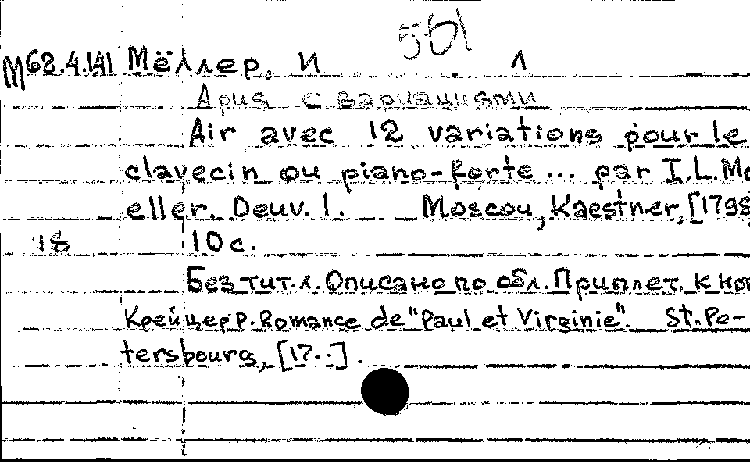 561
М68.4.141 Мёллер, И Л
Ария с вариациями
Air avec 12 variations pour le
clavecin ou piano-forte... par I.L.Mo
eller. Oeuv. 1. Moscou, Kaestner, [1798
18 10 с.
Без тит.л. Описано по обл. Приплет. к нот
Крейцер Р. Romance de "Paul et Virginie". St.Pe-
tersbourg, [17..].